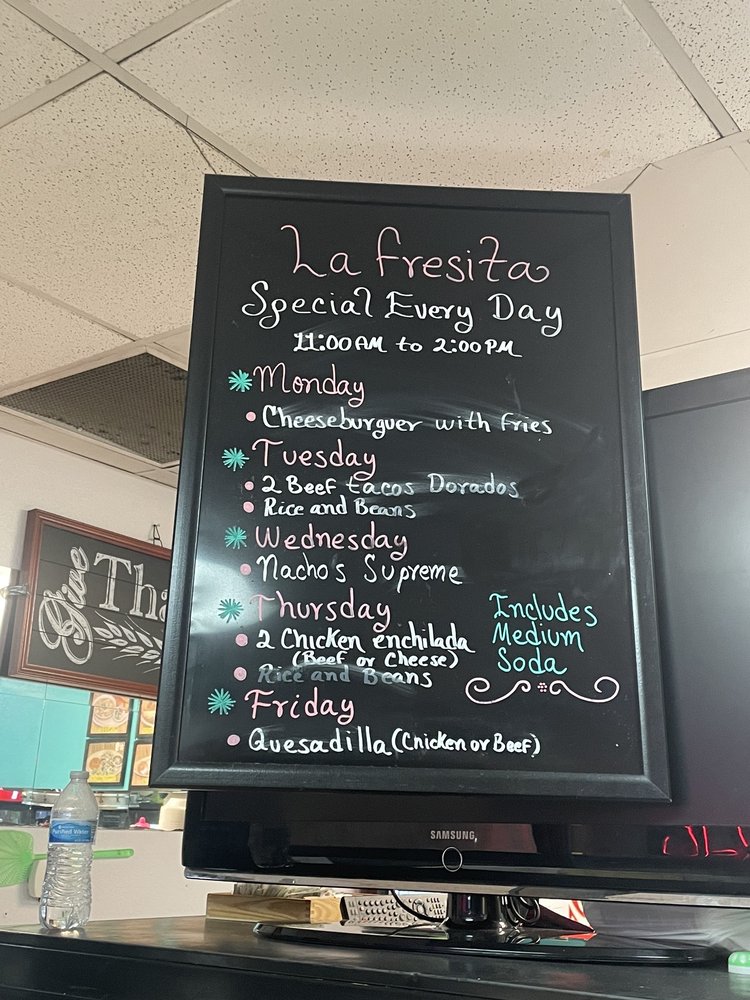 La fresita
Special Every Day
11:00AM to 2:00PM
Monday
Cheeseburguer with fries
Tuesday
2 Beef tacos Dorados
Rice and Beans
Wednesday
Nacho's Supreme
Thursday
2 Chicken enchilada
(Beef or Cheese)
Rice and Beans
Includes
Medium
Soda
Friday
Quesadilla (Chicken or Beef)
Give Tha
Purified Water
SAMSUNG